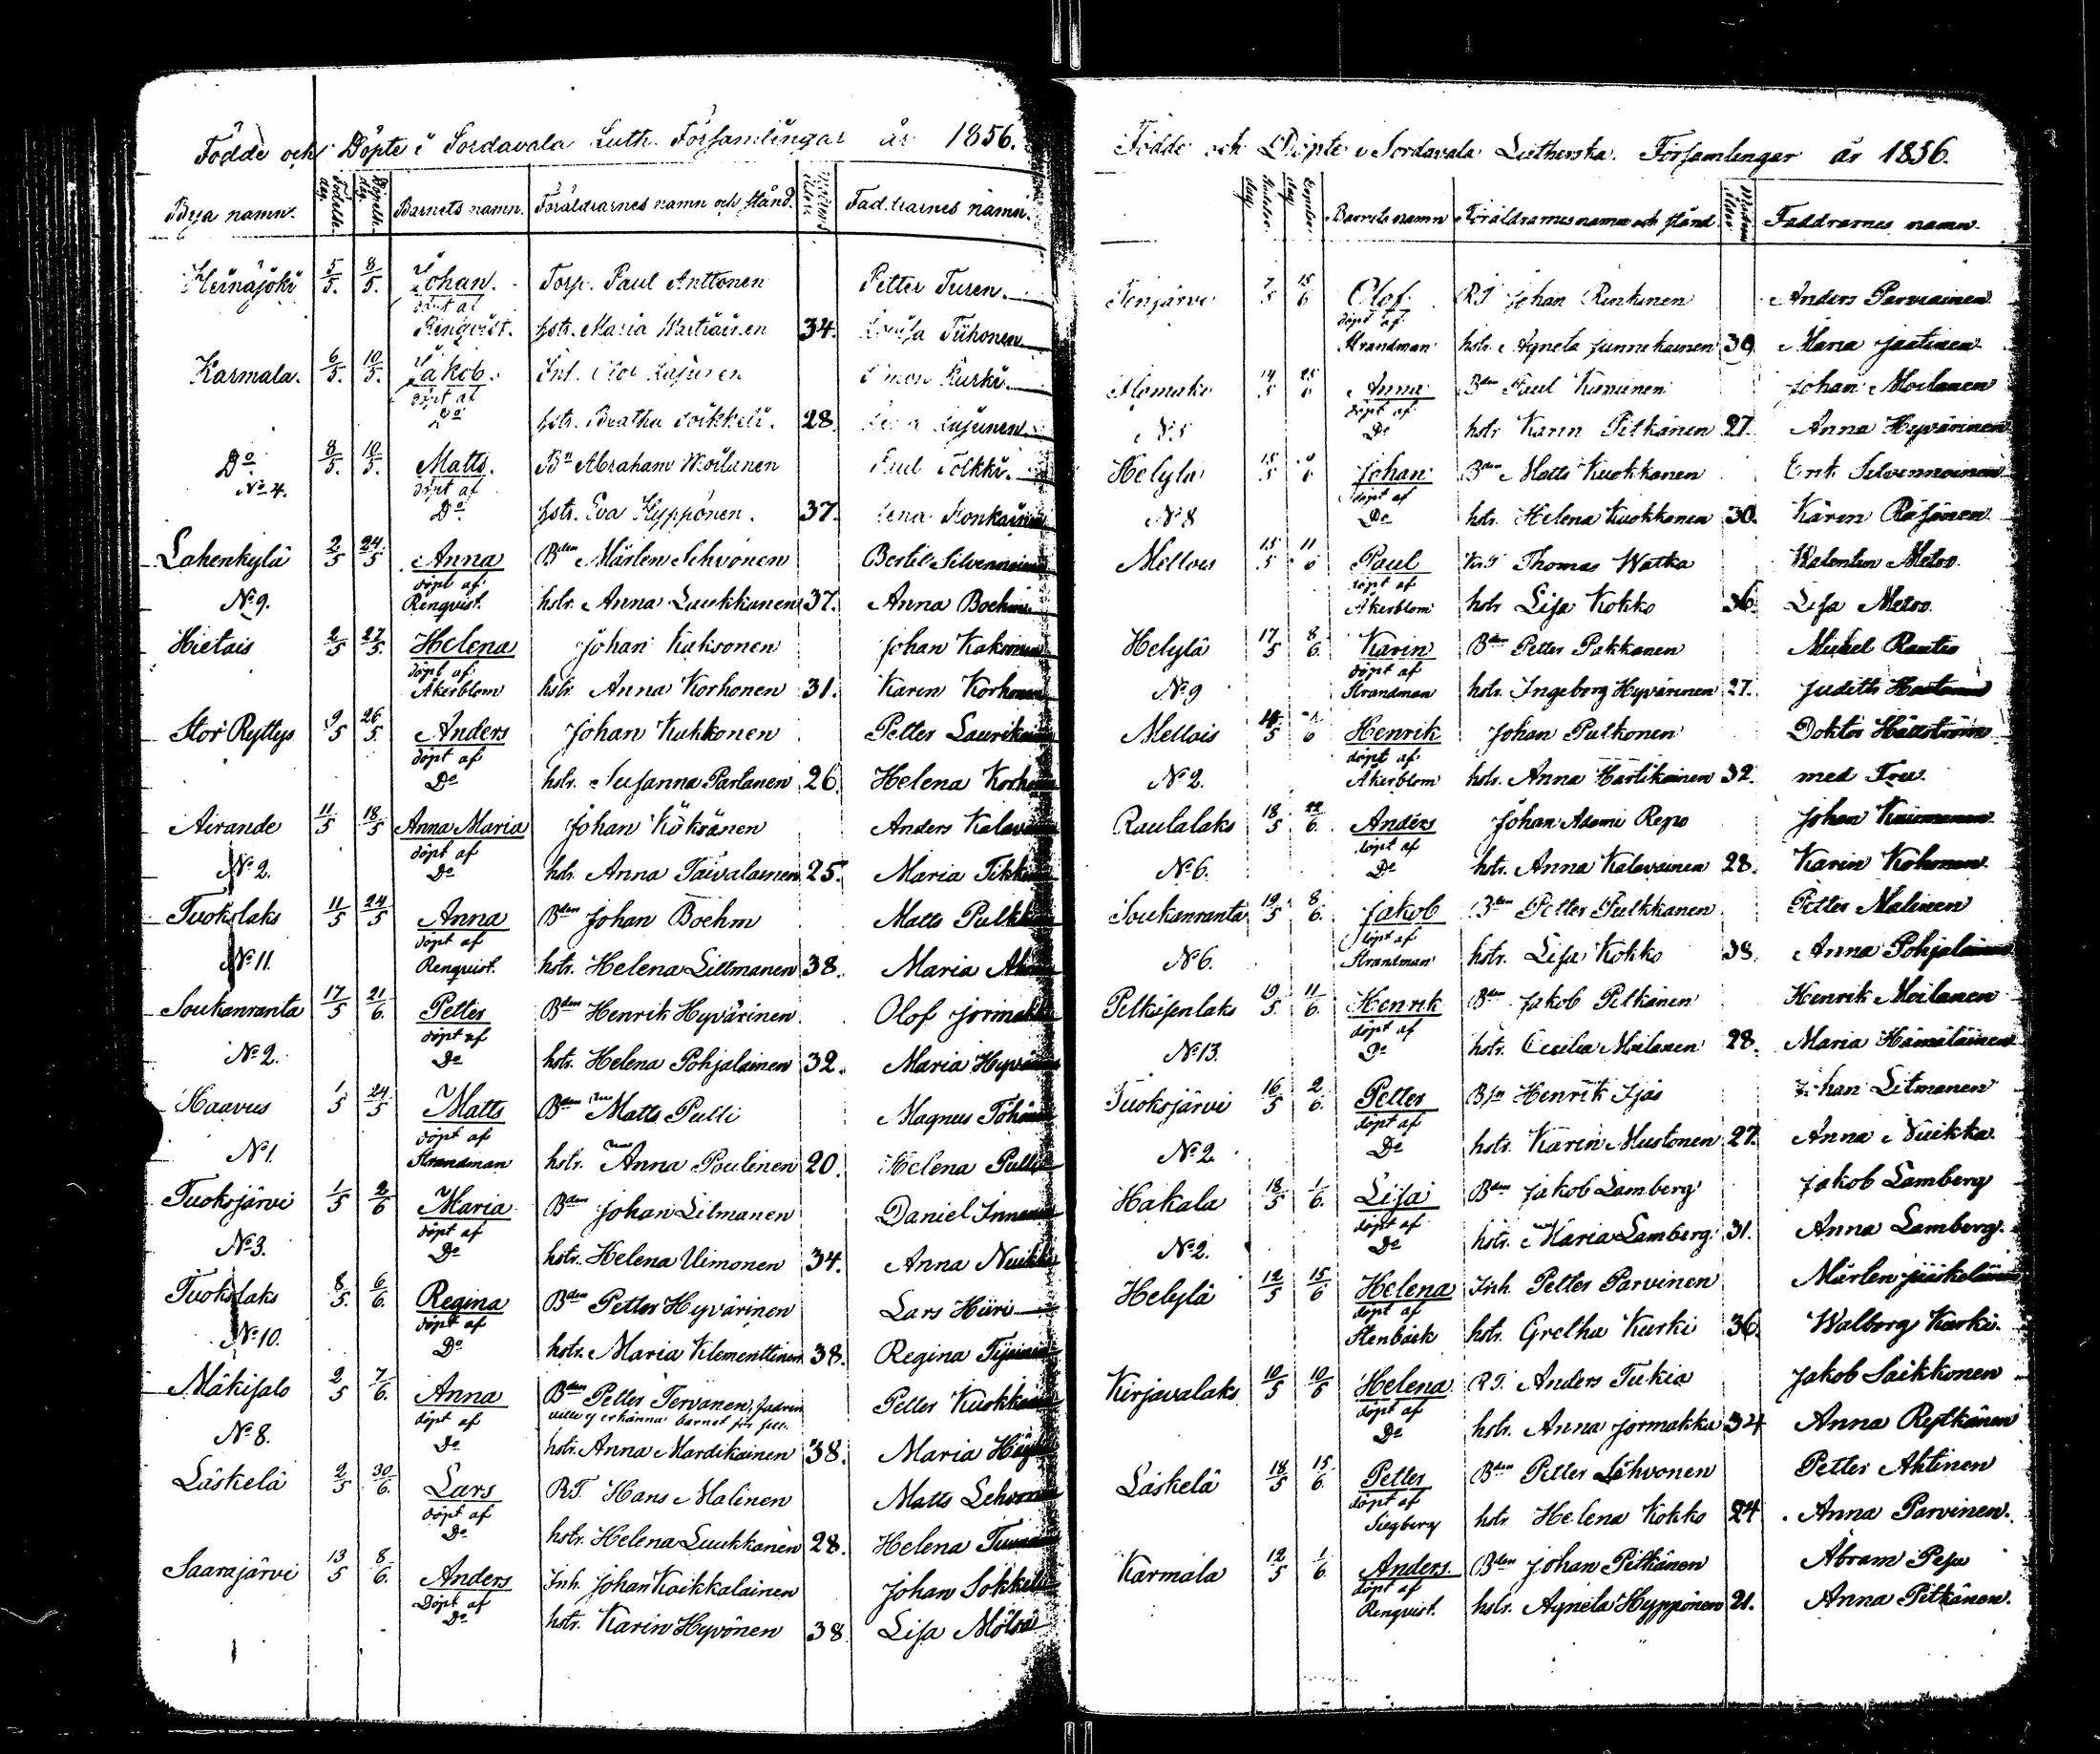 Födde och Döpte i Sordavala Luth. Församlingar år 1856.
Bya namn. Födelse dag. Döpelse dag. Barnets namn. Föräldrarnes namn och stånd. Moderns ålder Faddrarnes namn.
Heinäjoki 5/5. 8/5. Johan. Torp. Paul Anttonen Petter Turen.
döpt af
Renqvist. hstr. Maria Wartiainen 34. Tiihonen
Karmala. 6/5. 10/5. Jakob. Inh. Simon Kurki.
döpt af
Do hstr. Beatha 28.
Do 8/5. 10/5. Matts. Bn Abraham Moilanen Paul Tolkki.
No 4. döpt af
Do hstr. Eva Hyppönen. 37. Lena Konkainen
Lahenkylä 2/5 24/5 Anna Bden Mårten Lehvonen Bertil Silvennoinen
döpt af
No 9. Renqvist. hstr. Anna Luukkanen 37. Anna Boehm
Hietais 2/5 27/5. Helena Johan Kaksonen Johan Kaksonen
döpt af
Åkerblom hstr. Anna Korhonen 31. Karin Korhonen
Stor Ryttys 9/5 26/5. Anders Johan Kukkonen Petter Laurikainen
döpt af
Do hstr. Susanna Partanen 26. Helena Korhonen
Airande 11/5 18/5 Anna Maria Johan Kökränen Anders
döpt af
No 2. Do hstr. Anna Taivalainen 25. Maria
Tuokslaks 11/5 24/5 Anna Bden Johan Boehm Matts
döpt af
No 11. Renqvist. hstr. Helena Littmanen 38. Maria
Soukanranta 17/5 21/6. Petter Bden Henrik Hyvärinen Olof Jormakka
döpt af
No 2. Do hstr. Helena Pohjalainen 32. Maria Hyvärinen
Haavus 1/5 24/5 Matts Bden Matts Pulli Magnus
döpt af
No 1. Strandman hstr. Anna Poulinen 20. Helena
Tuoksjärvi 1/5 2/6 Maria Bden Johan Litmanen Daniel
döpt af
No 3. Do hstr. Helena Uimonen 34. Anna Nuikka
Tuokslaks 8/5. 6/6. Regina Bden Petter Hyvärinen Lars Hiiri
döpt af
No 10. Do hstr. Maria Klementtinen 38. Regina
Mäkisalo 2/5 7/6. Anna Bden Petter Tervonen, fadren Petter Kuokkanen
döpt af ville ej erkänna barnet för sitt.
No 8. Do hstr. Anna Mardikainen 38. Maria
Läskelä 2/5 30/6. Lars R.T. Hans Malinen Matts Lehvonen
döpt af
Do hstr. Helena Luukkanen 28. Helena
Saarajärvi 13/5 8/6. Anders Inh. Johan Kaikkalainen Johan
Döpt af
Do hstr. Karin Hyvönen 38. Lisa Mölsä
Födde och Döpte i Sordavala Lutherska Församlingar år 1856.
Barnets namn Föräldrarnes namn och stånd Moderns ålder Faddrarnes namn.
7/5 15/6 Olof. R.T. Johan Rintunen Anders Parviainen
döpt af
Strandman hstr. Agneta Junnikainen 39. Maria Jaatinen
14/5 Anna Bden Paul Johan Moilanen
döpt af
No 5 Do hstr Karin Pitkänen 27. Anna Hyvärinen
Helylä 15/5 Johan Bden Matts Kuokkanen Erik Silvennoinen
döpt af
No 8 Do hstr. Helena Kuokkanen 30. Karin Räsänen
Mellois 15/5 11/6 Paul Thomas Watka Walentin Metso
döpt af
Åkerblom hstr Lisa Kokko 36. Lisa Metso
Helylä 17/5 8/6. Karin Bden Petter Pakkanen Mickel Rautio
döpt af
No 9 Strandman hstr. Ingeborg Hyvärinen 27. Judith
Mellois 14/5 6 Henrik Johan Pulkonen Doktor Hällström
döpt af
No 2. Åkerblom hstr. Anna Härtikainen 32. med Fru.
Raulalaks 18/5 22/6. Anders Johan Adami Repo Johan
döpt af
No 6. Do hstr. Anna Kalavainen 28. Karin Kohonen
Soukanranta 19/5 8/6. Jakob Bden Petter Pulkkanen Petter Malinen
döpt af
No 6. Strandman hstr. Lisa Kokko 38. Anna Pohjalainen
Pitkäsenlaks 19/5. 11/6. Henrik Bden Jakob Pitkänen Henrik Moilanen
döpt af
No 13. Do hstr. Cecilia Moilanen 28. Maria Hämäläinen
Tuoksjärvi 16/5 2/6. Petter Bsn Henrik Ijäs Johan Litmanen
döpt af
No 2. Do hstr. Karin Mustonen 27. Anna Nuikka
Hakala 18/5 1/6. Lisa Bden Jakob Lamberg Jakob Lamberg
döpt af
No 2. Do hstr. Maria Lamberg 31. Anna Lamberg.
Helylä 12/5 15/6 Helena Inh. Petter Parvinen Mårten Jääskeläinen
döpt af
Stenbäck hstr. Gretha Kurki 36. Walborg Kurki.
Kirjavalaks 10/5 10/5 Helena R.T. Anders Tukia Jakob Saikkonen
döpt af
Do hstr. Anna Jormakka 34 Anna Rytkänen
Läskelä 18/5 15/6. Petter Bden Petter Lehvonen Petter Ahtinen
döpt af
Siegberg hstr Helena Kokko 24 Anna Parvinen.
Karmala 12/5 1/6. Anders. Bden Johan Pitkänen Abram Peju
döpt af
Renqvist. hstr. Agneta Hyppönen 21. Anna Pitkänen.